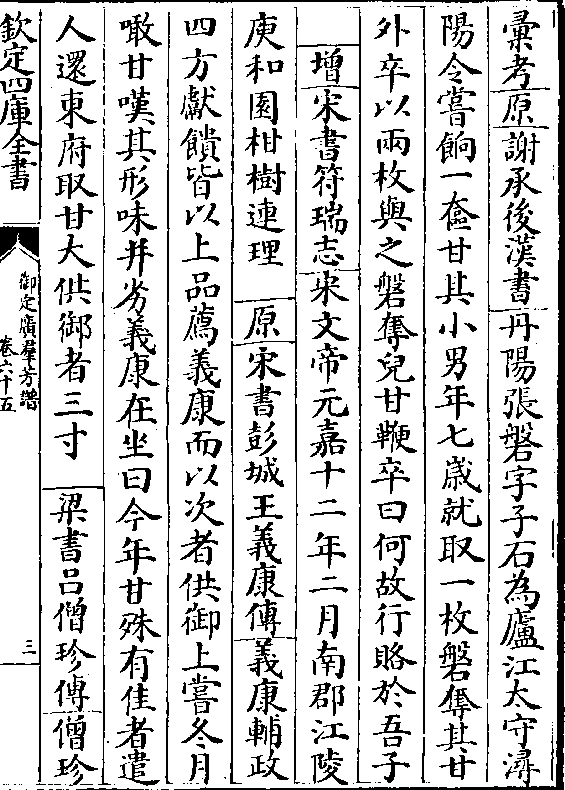 彚考原謝承後漢書丹陽張磐字子石為廬江太守潯
陽令嘗餉一奩甘其小男年七歳就取一枚磐奪其甘
外卒以兩枚與之磐奪兒甘鞭卒曰何故行賂於吾子
増宋書符瑞志宋文帝元嘉十二年二月南郡江陵
庾和園柑樹連理 原宋書彭城王義康傳義康輔政
四方獻饋皆以上品薦義康而以次者供御上嘗冬月
噉甘嘆其形味并劣義康在坐曰今年甘殊有佳者遣
人還東府取甘大供御者三寸 梁書吕僧珍傳僧珍
欽定四庫全書
御定廣羣芳譜
卷六十五
三